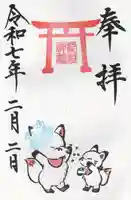 奉拝
令和七年
二月二日